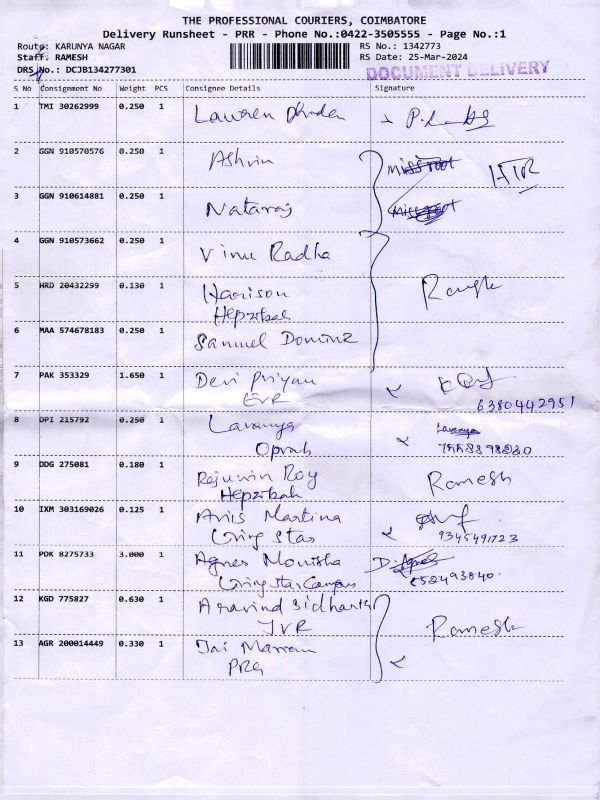 THE PROFESSIONAL COURIERS, COIMBATORE
Delivery Runsheet - PRR - Phone No.:0422-3505555 - Page No.:1
Route: KARUNYA NAGAR RS No.: 1342773
Staff: RAMESH RS Date: 25-Mar-2024
DRS No.: DCJB134277301 DOCUMENT DELIVERY
S No Consignment No Weight PCS Consignee Details Signature
1 TMI 30262999 0.250 1 Lawren
2 GGN 910570576 0.250 1 Ashvin
3 GGN 910614881 0.250 1 Nataraj
4 GGN 910573662 0.250 1 Vinu Radha
5 HRD 20432299 0.130 1 Harison
Hepzibah
6 MAA 574678183 0.250 1 Samuel Dominz
7 PAK 353329 1.650 1 Devi Priyan
EVR 6380442951
8 DPI 215792 0.250 1 Lavanya Lavanya
Oprah
9 DDG 275081 0.180 1 Rejuvin Roy Ramesh
Hepzibah
10 IXM 303169026 0.125 1 Avis Martina
Living Star 9345491723
11 PDK 8275733 3.000 1 Agnes Monisha D. Agnes
Living Star Campus
12 KGD 775827 0.630 1 Aravind Sidharth Ramesh
JVR
13 AGR 200014449 0.330 1 Jai
PRG